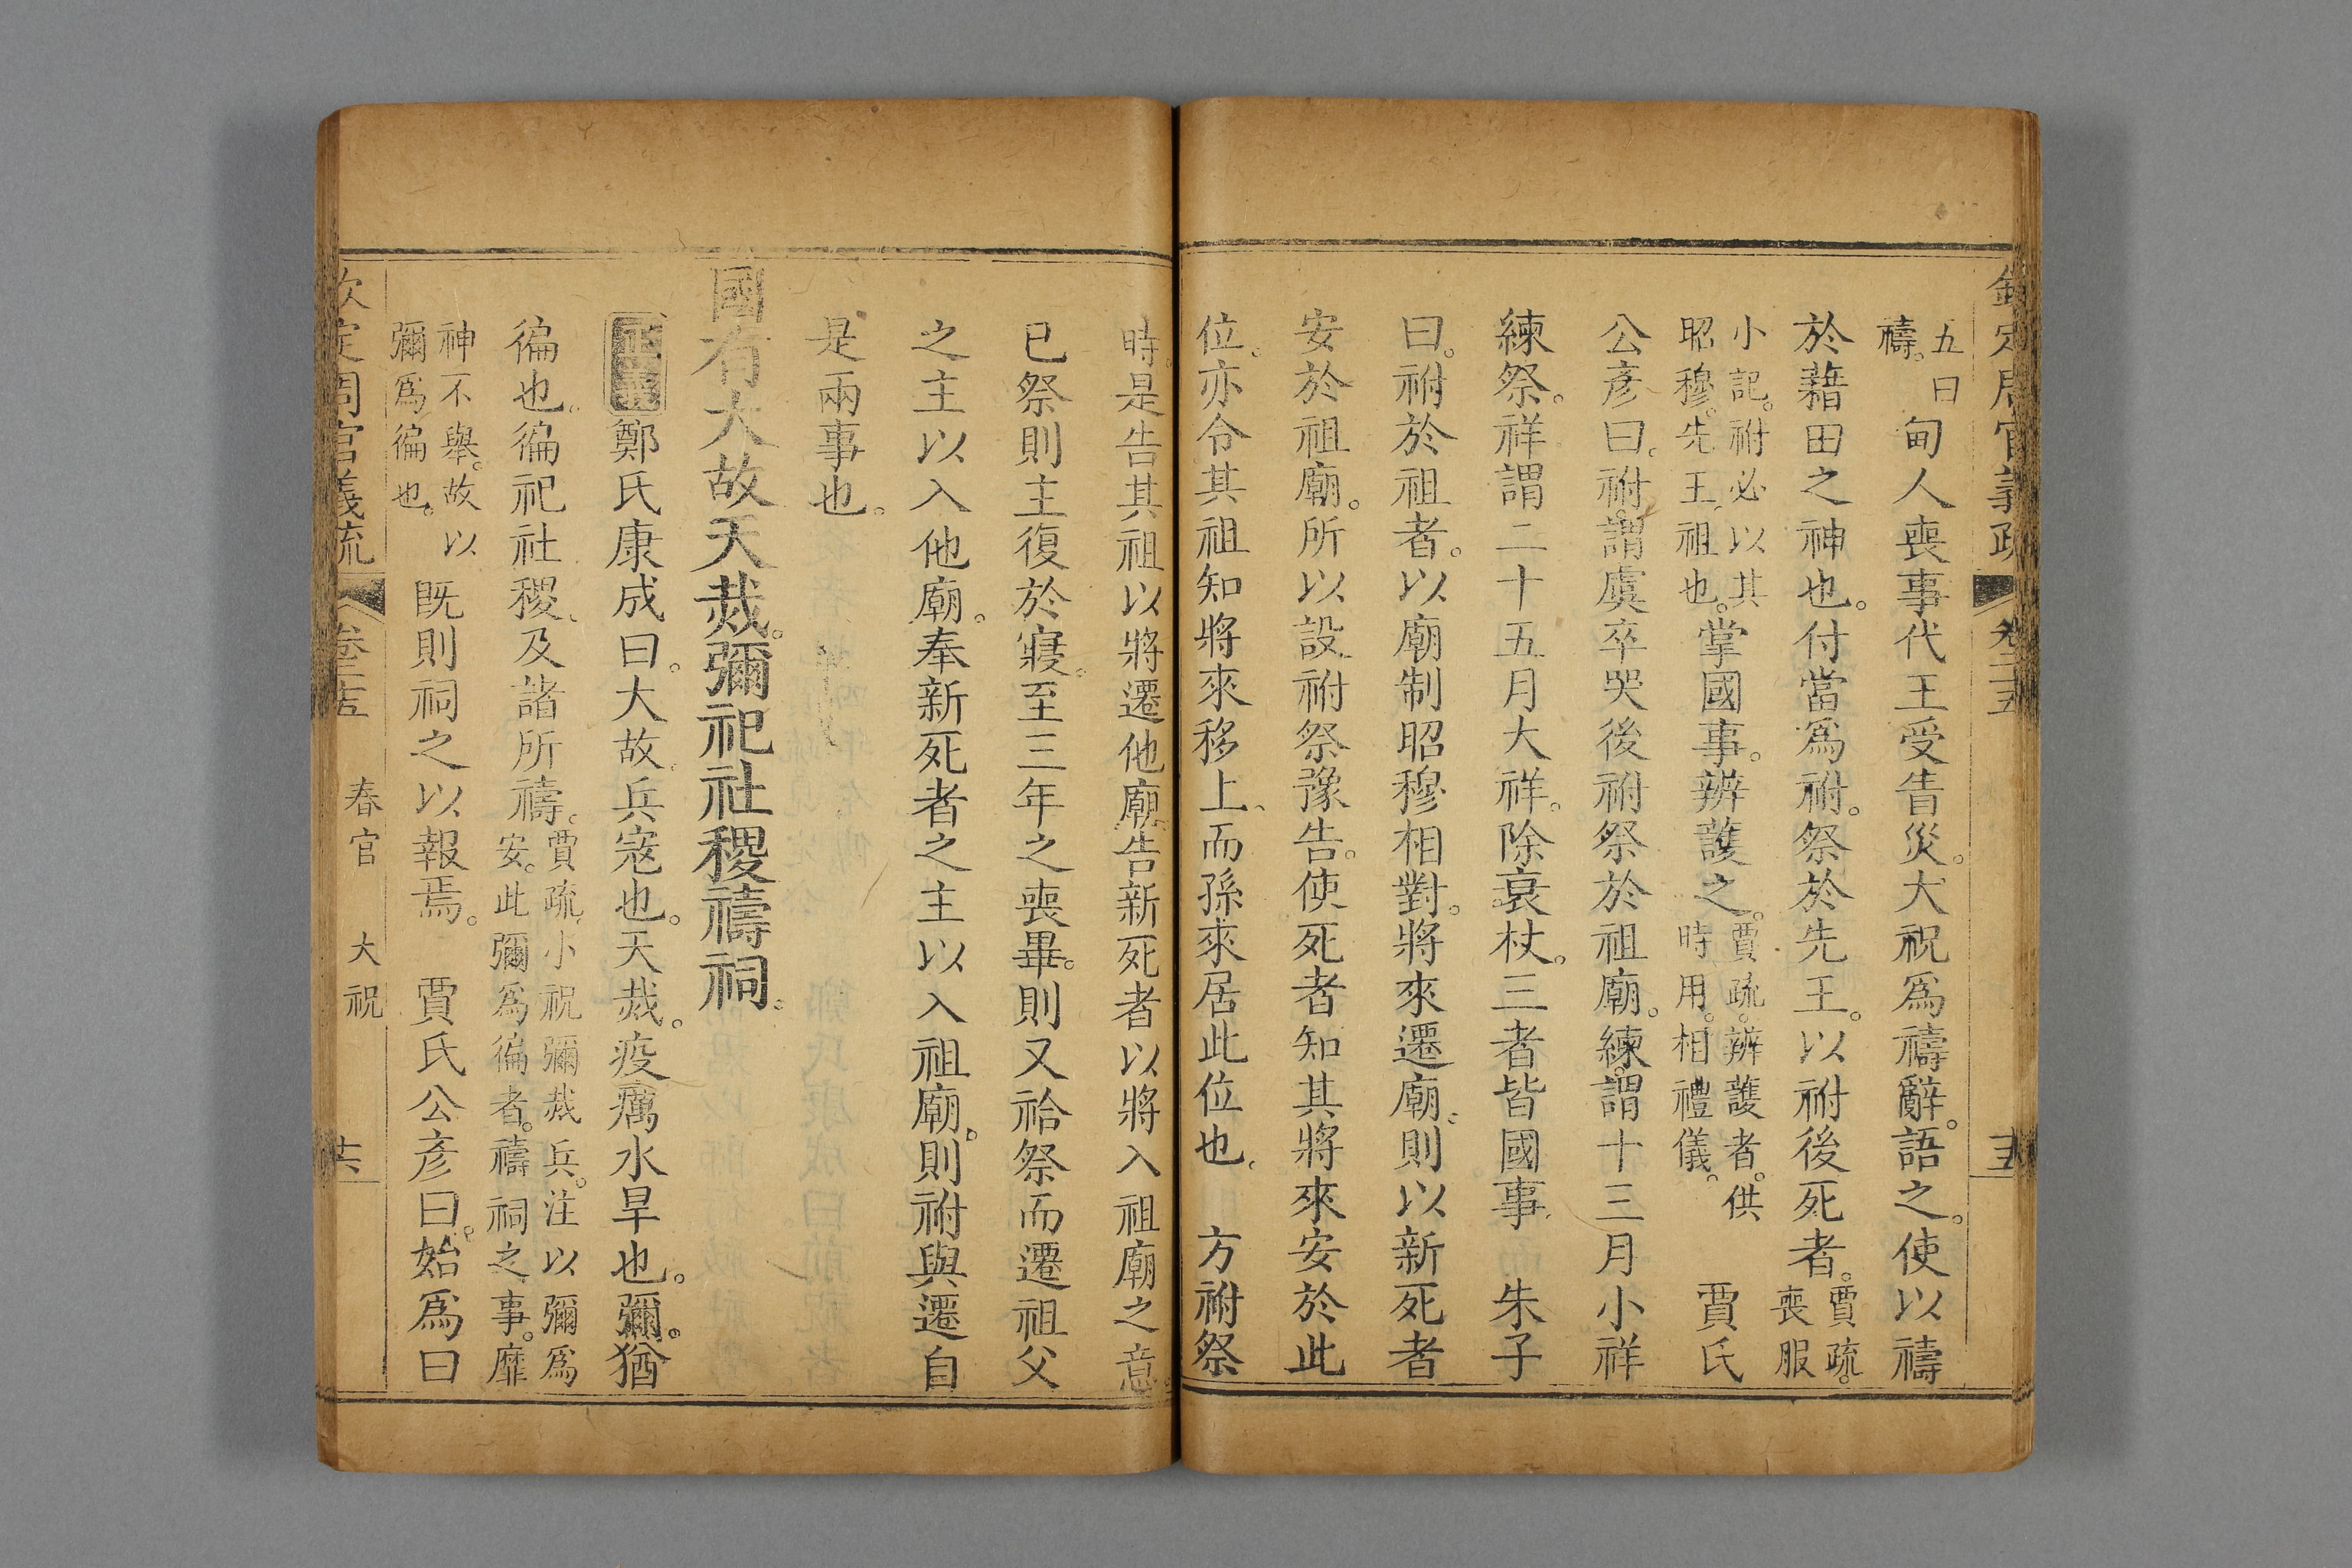 欽定周官義疏 卷二十五
五曰禱。甸人喪事代王受眚災。大祝爲禱辭。語之。使以禱
於藉田之神也。付當爲祔。祭於先王。以祔後死者。賈疏。喪服
小記。祔必以其昭穆。先王。祖也。掌國事。辨護之。賈疏。辨護者。供時用。相禮儀。 賈氏
公彥曰。祔。謂虞卒哭後祔祭於祖廟。練。謂十三月小祥
練祭。祥謂二十五月大祥。除衰杖。三者皆國事。 朱子
曰。祔於祖者。以廟制昭穆相對。將來遷廟。則以新死者
安於祖廟。所以設祔祭豫告。使死者知其將來安於此
位。亦令其祖知將來移上。而孫來居此位也。 方祔祭
時。是告其祖以將遷他廟。告新死者以將入祖廟之意。
已祭則主復於寢。至三年之喪畢。則又祫祭而遷祖父
之主以入他廟。奉新死者之主以入祖廟。則祔與遷自
是兩事也。
國有大故天烖。彌祀社稷禱祠。
正義鄭氏康成曰。大故。兵寇也。天烖。疫癘水旱也。彌。猶
徧也。徧祀社稷。及諸所禱。賈疏。小祝彌烖兵。注以彌爲安。此彌爲徧者。禱祠之事。靡
神不舉。故以彌爲徧也。 旣則祠之以報焉。 賈氏公彥曰。始爲曰
欽定周官義疏 卷二十五 春官 大祝 十六